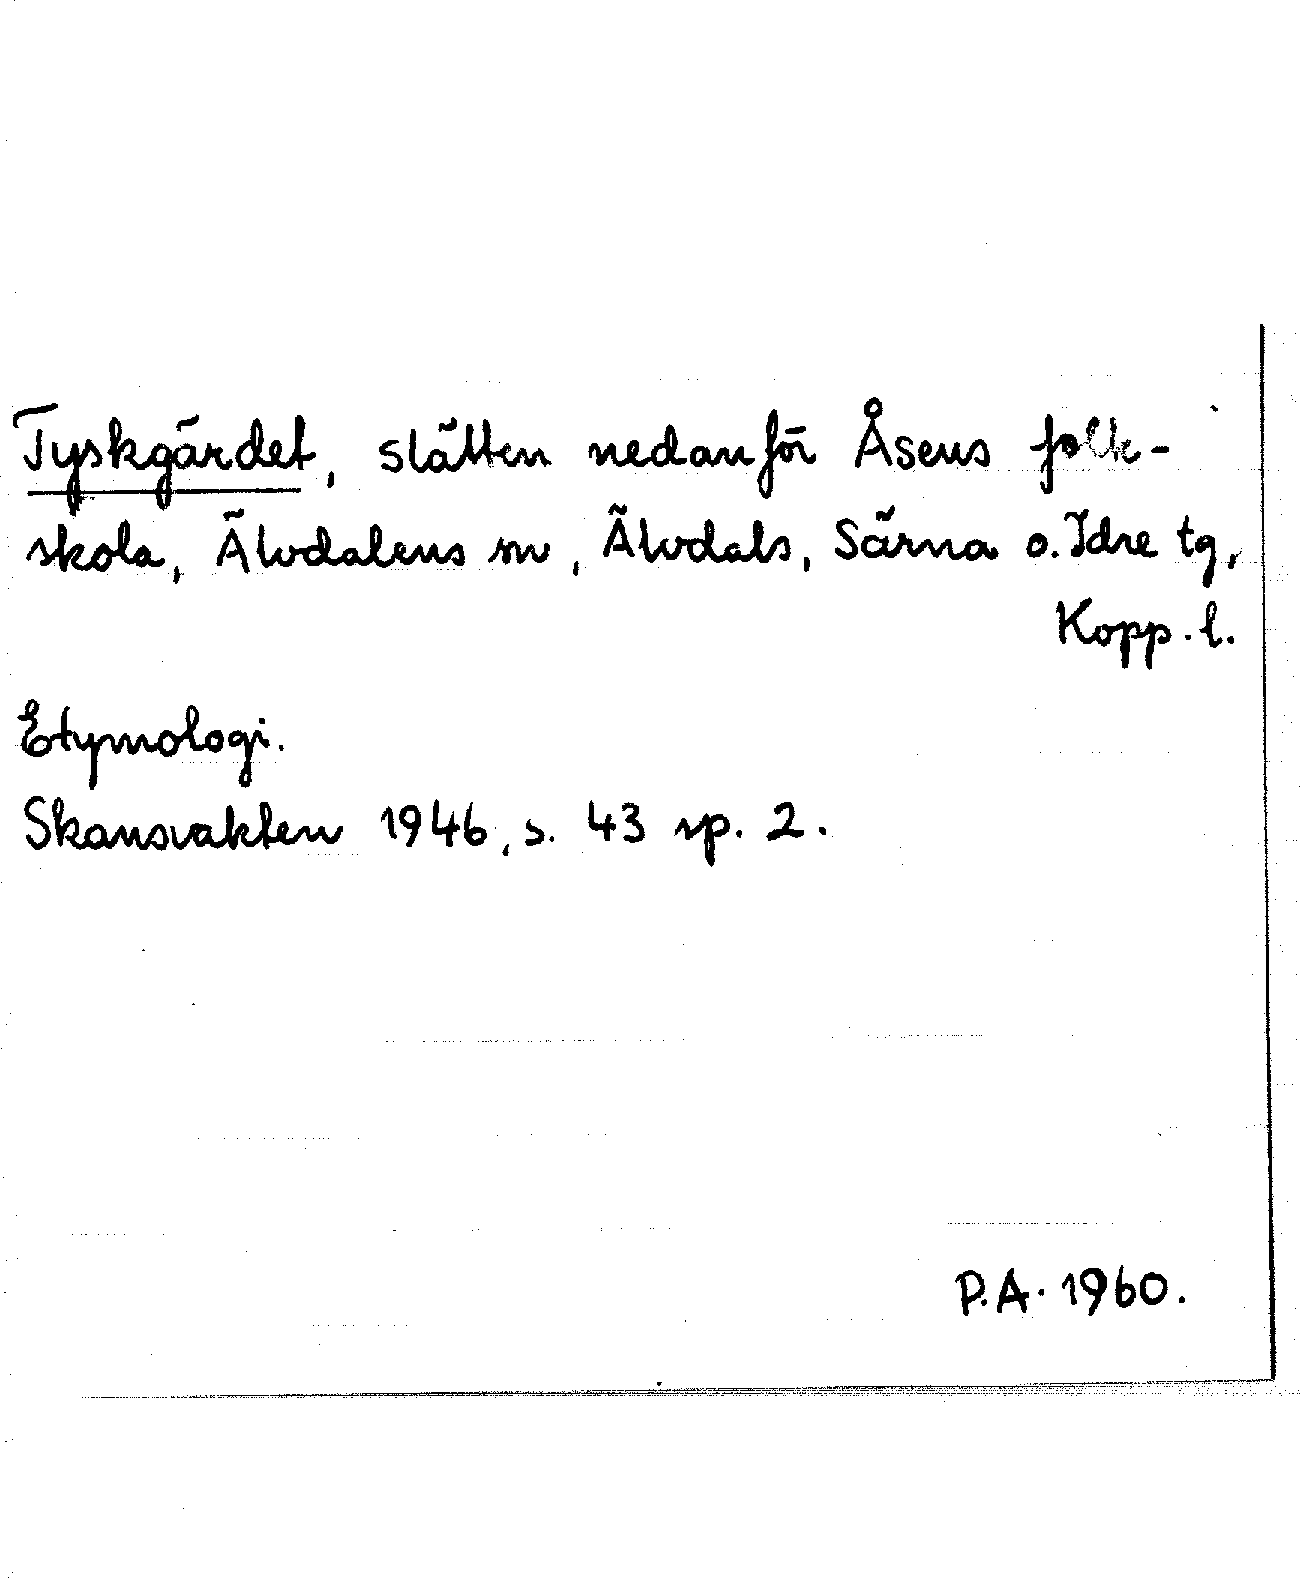 Tyskgärdet, slätten nedanför Åsens folk-
skola, Älvdalens sn, Älvdals, Särna o. Idre tg,
Kopp. l.
Etymologi.
Skansvakten 1946, s. 43 sp. 2.
P.A. 1960.